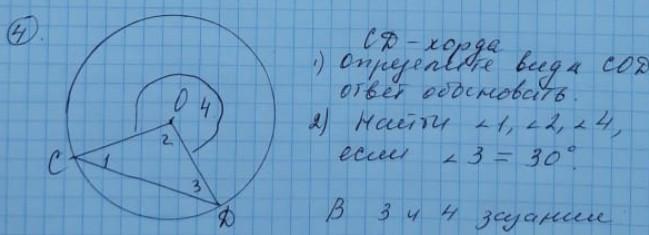 4.
СД - хорда
1) Определите вида СОД
ответ обосновать.
2) Найти ∠1, ∠2, ∠4,
если ∠3 = 30°.
В 3 и 4 задании
О 4
2
С 1
3
Д